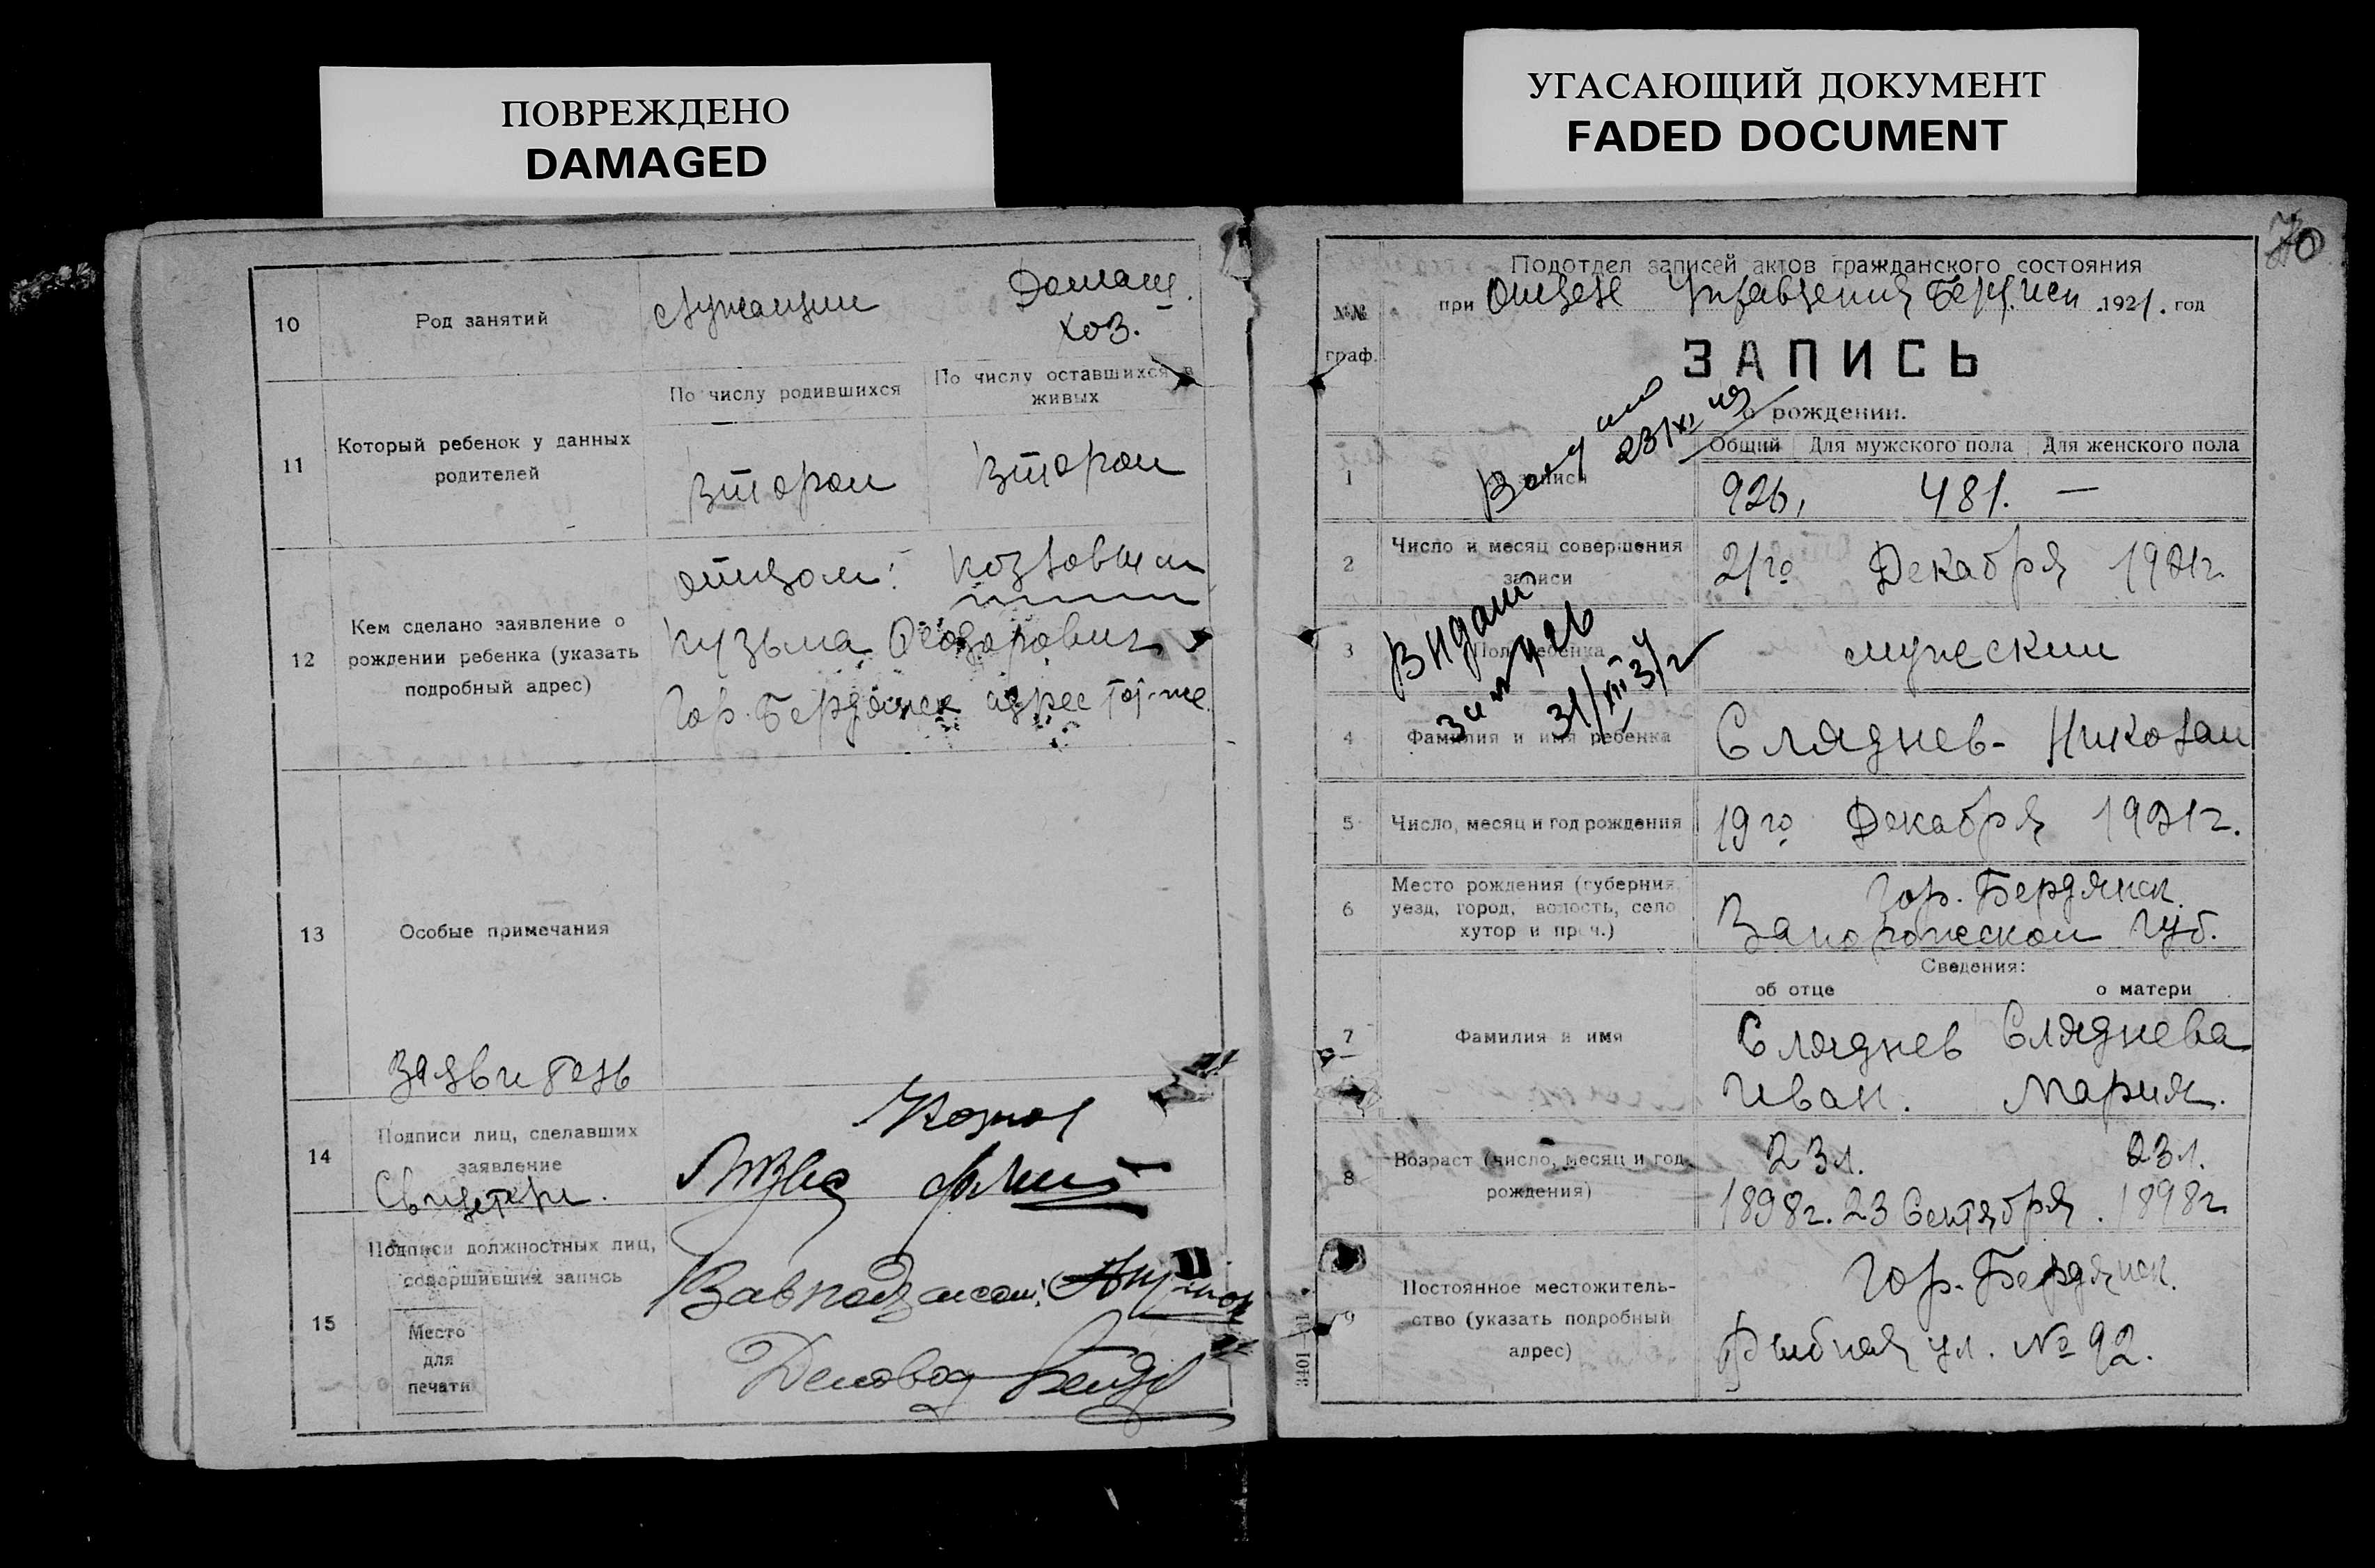 ПОВРЕЖДЕНО
DAMAGED
10
Род занятий
Служащий
Домашн.
хоз.
11
Который ребенок у данных
родителей
По числу родившихся
По числу оставшихся в
живых
Второй
Второй
12
Кем сделано заявление о
рождении ребенка (указать
подробный адрес)
отцом:
Кузьма
Гор. Бердянск адрес тот-же
13
Особые примечания
Заявитель
14
Подписи лиц, сделавших
заявление
Свидетели.
15
Подписи должностных лиц,
совершивших запись
Место
для
печати
Делопод
УГАСАЮЩИЙ ДОКУМЕНТ
FADED DOCUMENT
70
№№
граф.
Подотдел записей актов гражданского состояния
при Отделе Управления 1921. год
ЗАПИСЬ
о рождении.
1
записи
Общий Для мужского пола Для женского пола
926, 481. —
2
Число и месяц совершения
записи
21го Декабря 1921г.
3
Пол ребенка
мужеский
4
Фамилия и имя ребенка
Сляднев- Николай
5
Число, месяц и год рождения
19го Декабря 1921г.
6
Место рождения (губерния,
уезд, город, волость, село
хутор и проч.)
Гор. Бердянск.
Запорожской губ.
Сведения:
об отце
о матери
7
Фамилия и имя
Сляднев
Иван.
Сляднева
Мария.
8
Возраст (число, месяц и год
рождения)
23л.
1898г. 23 Сентября.
23л.
1898г.
9
Постоянное местожитель-
ство (указать подробный
адрес)
Гор. Бердянск.
Рыбная ул. № 92.
Выдан
31/XII 31г